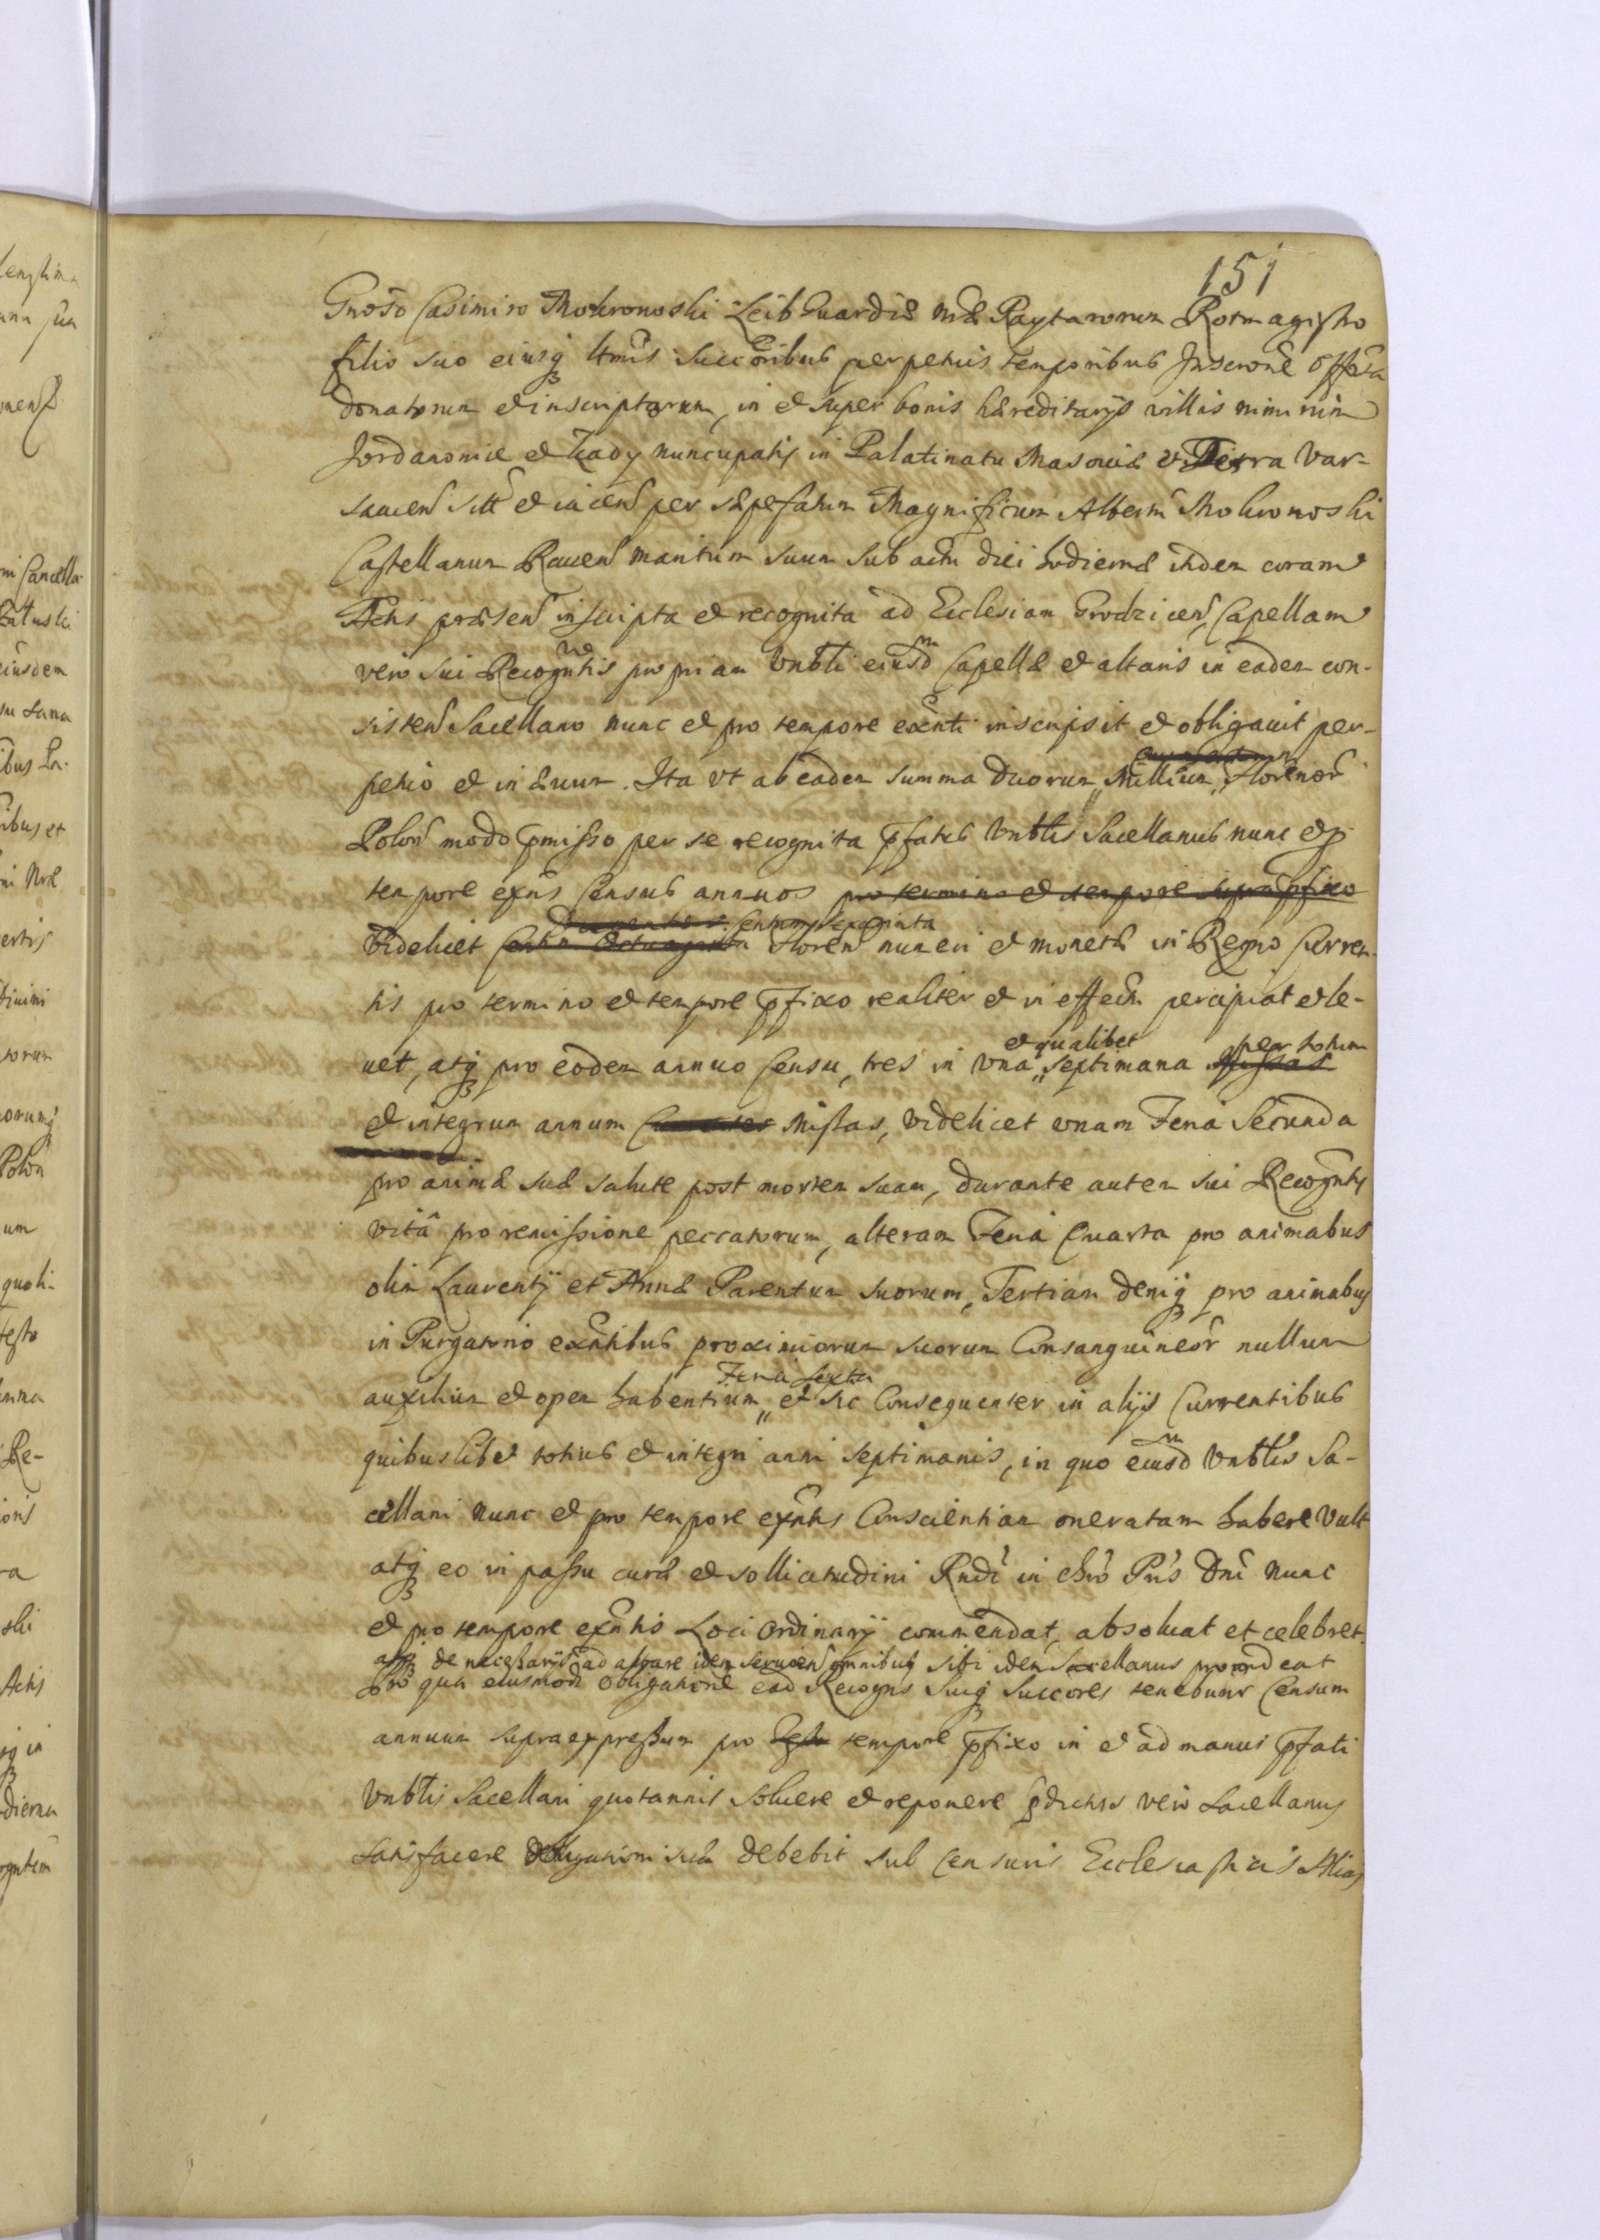 151
Gnoso Casimiro Mokronoski Leib Guardiæ nræ Raytarorum Rotmagistro
filio suo eiusq ltmis succoribus perpetuis temporibus Inscrone
donatorum et inscriptorum, in et super bonis hæreditarijs villis nimirum
Jordanowice et Kady nuncupatis in Palatinatu Masouiæ et Terra Var-
sauien sitt et iacen per sæpefatum Magnificum Albertu Mokronoski
Castellanum Rauen maritum suum sub actu diei hodiernæ ibidem coram
Actis præsen inscripta et recognita ad Ecclesiam Grodzicen, Capellam
vero sui Recogntis propriam Vnbli eiusd m Capellæ et altaris in eadem con-
sisten Sacellano nunc et pro tempore exnti inscripsit et obligauit per-
petuo et in æuum. Ita vt ab eadem summa Duorum Millium Florenor
Polon modo pmisso per se recognita pfatus Vnblis Sacellanus nunc et p
tempore exns Census annuos pro termino et tempore supra pfixo
Ducentor Centum sexaginta
Videlicet Centu Octuaginta Floren numeri et monetæ in Regno Curren-
tis pro termino et tempore pfixo realiter et in effectu percipiat et le-
et qualibet per totum
uet, atq pro eodem annuo Censu, tres in vna septimana Missas
et integrum annum Missas, videlicet vnam Feria Secunda
pro animæ suæ salute post mortem suam, durante autem sui Recogntis
vita pro remissione peccatorum, alteram Feria Quarta pro animabus
olim Laurentij et Annæ Parentum suorum, Tertiam deniq pro animabus
in Purgatorio exntibus proximiorum suorum Consanguineor nullum
Feria Sexta
auxilium et opem habentium et sic Consequenter in alijs Currentibus
quibuslibet totius et integri anni septimanis, in quo eiusd m Vnblis Sa-
cellani nunc et pro tempore exntis Conscientiam oneratam habere Vult
atq eo in passu curæ et sollicitudini Rndi in Chro Pris Dni nunc
et pro tempore exntis Loci Ordinarij commendat, absoluat et celebret
atq de necessarijs ad altare idem seruien omnibus sibi idem Sacellanus prouideat
Pro qua eiusmodi obligatione ead Recogns suiq Succores tenebuntr Censum
annuum supraexpressum pro tempore pfixo in et ad manus pfati
Vnblis Sacellani quotannis soluere et reponere pdictus vero Sacellanus
satisfacere obligationi suæ debebit sub censuris Ecclesiasticis Alias